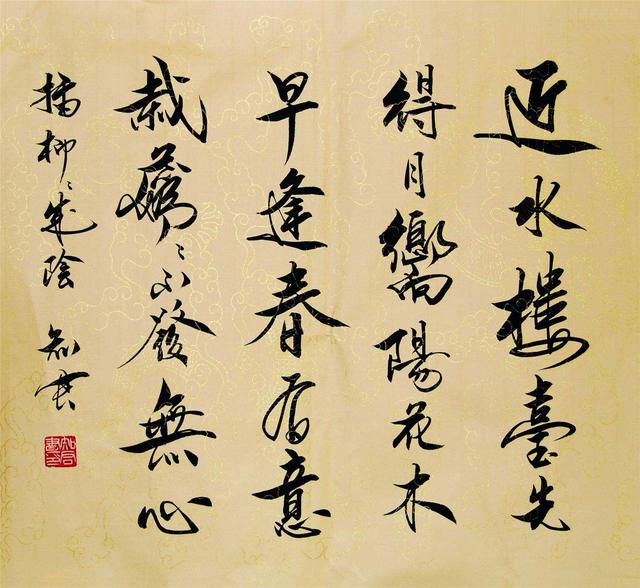 近水樓臺先
得月嚮陽花木
早逢春有意
栽蘤〻不發無心
插柳〻成陰 知君